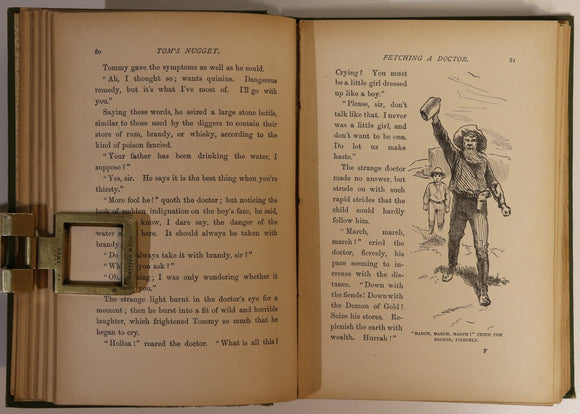 80 TOM'S NUGGET.
Tommy gave the symptoms as well as he could.
"Ah, I thought so; wants quinine. Dangerous
remedy, but it's what I've most of. I'll go with
you."
Saying these words, he seized a large stone bottle,
similar to those used by the diggers to contain their
store of rum, brandy, or whisky, according to the
kind of poison fancied.
"Your father has been drinking the water, I
suppose?"
"Yes, sir. He says it is the best thing when you're
thirsty."
"More fool he!" quoth the doctor; but noticing the
look of sudden indignation on the boy's face, he said,
know, I dare say, the danger of
water here. It should always be taken with
brandy.
"Do always take it with brandy, sir?"
"Why you ask?"
"Oh, thing; I was only wondering whether
it you."
The strange light burst in the doctor's eye for a
moment; then he burst into a fit of wild and horrible
laughter, which frightened Tommy so much that he
began to cry.
"Holloa!" roared the doctor. "What is all this?
FETCHING A DOCTOR. 81
Crying? You must
be a little girl dressed
up like a boy."
"Please, sir, don't
talk like that. I never
was a little girl, and
don't want to be one.
Do let us make
haste."
The strange doctor
made no answer, but
strode on with such
rapid strides that the
child could hardly
follow him.
"March, march,
march!" cried the
doctor, fiercely, his
pace seeming to in-
crease with the dis-
tance. "Down with
the fiends! Down with
the Demon of Gold!
Seize his stores. Re-
plenish the earth with
wealth. Hurrah!"
"MARCH, MARCH, MARCH!" CRIED THE
DOCTOR, FIERCELY.
F